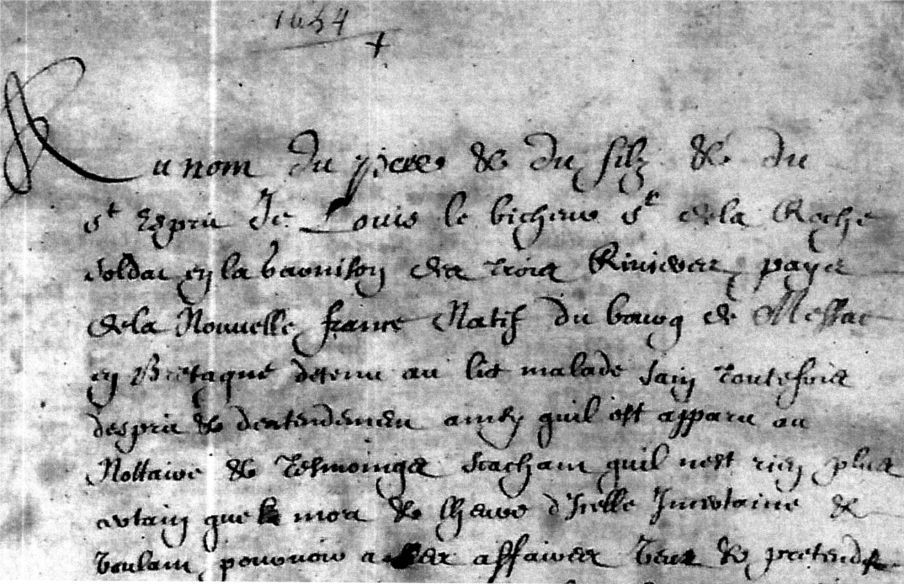 1654
Au nom du pere & du filz & du
st Esprit Je Louis le bicheur sr de la Roche
soldat en la garnison des trois Rivieres, payes
de la Nouvelle france Natif du bourg de Messac
en Bretagne detenu au lict malade sain toutefois
desprit & dentendement ainsy quil est apparu au
Nottaire & tesmoings scachant quil nest rien plus
certain que la mort & lheure d'Icelle Incertaine &
voulant pourvoir a ses affaires veut & pretend